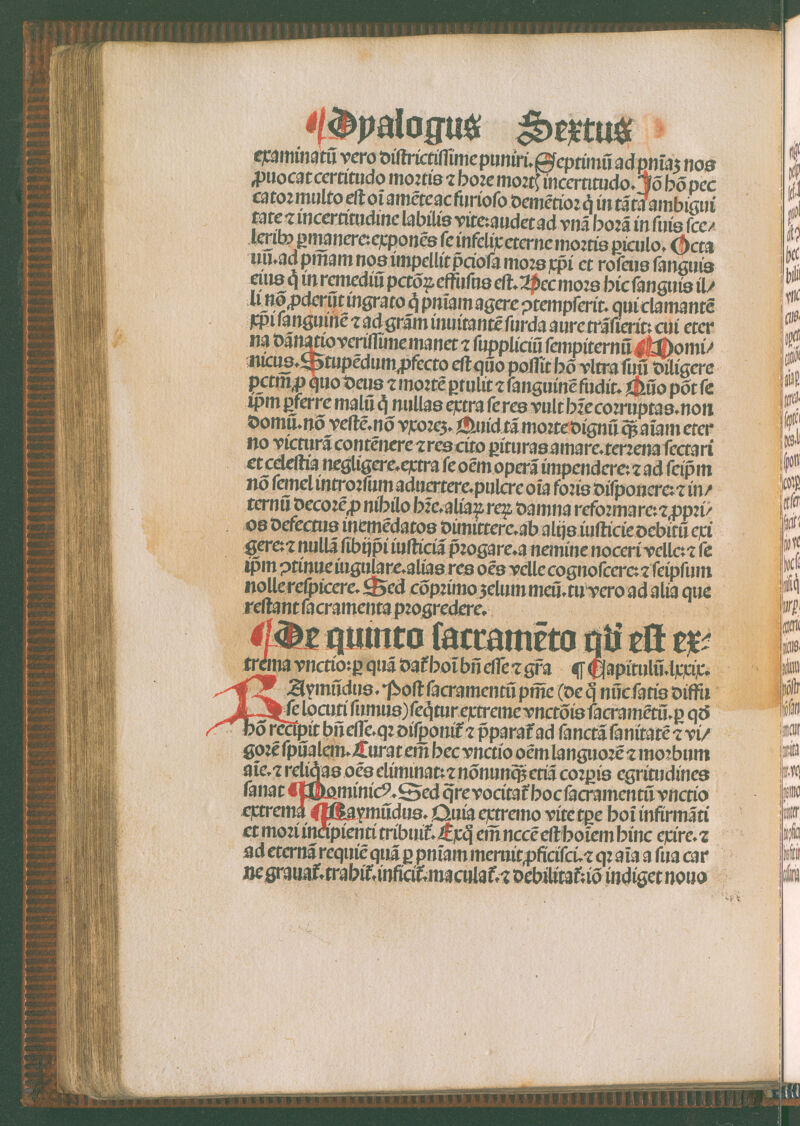 ¶ Dyalogus Sextus
examinatū vero districtissime puniri. Septimū ad pn̄iaꝫ nos
ꝓuocat certitudo mortis ⁊ hore mortꝭ incertitudo. Iō hō pec
cator multo est oī amēte ac furioso demētior q̇ in tāta ambigui
tate ⁊ incertitudine labilis vite: audet ad vnā horā in suis sce⸗
leribꝰ ꝑmanere: exponēs se infelix eterne mortis ꝑiculo. Octa
uū. ad pn̄iam nos impellit p̄ciosa mors xp̄i et roseus sanguis
eius q̇ in remediū pctōꝝ effusus est. Hec mors hic sanguis il⸗
li nō ꝓderūt ingrato q̇ pn̄iam agere ꝯtempserit. qui clamantē
xp̄i sanguinē ⁊ ad grām inuitantē surda aure trāsierit: cui eter
na dānatio verissime manet ⁊ suppliciū sempiternū ¶ Domi⸗
nicus. Stupēdum ꝓfecto est quō possit hō vltra suū diligere
pctm̄, ꝓ quo deus ⁊ mortē ꝑtulit ⁊ sanguinē fudit. Quō pōt se
ip̄m ꝑferre malū q̇ nullas extra se res vult hr̄e corruptas. non
domū. nō vestē. nō vxoreꝫ. Quid tā morte dignū qꝫ̄ aīam eter
no victurā contēnere ⁊ res cito ꝑituras amare. terrena sectari
et celestia negligere. extra se oēm operā impendere: ⁊ ad seip̄m
nō semel introrsum aduertere. pulcre oīa foris disponere: ⁊ in⸗
ternū decorē ꝓ nihilo hr̄e. aliaꝝ reꝝ damna reformare: ⁊ ꝓpri⸗
os defectus inemēdatos dimittere. ab alijs iusticie debitū exi
gere: ⁊ nullā sibijp̄i iusticiā p̄rogare. a nemine noceri velle: ⁊ se
ip̄m ꝯtinue iugulare. alias res oēs velle cognoscere: ⁊ seipsum
nolle respicere. Sed cōprimo zelum meū. tu vero ad alia que
restant sacramenta progredere.
¶ De quinto sacramēto qḋ est ex⸗
trema vnctio: ꝑ quā dat̄ hoī bn̄ esse ⁊ gr̄a ¶ Capitulū. lxxix.
RAymūdus. Post sacramentū pn̄ie (de q̇ nūc satis diffu
se locuti sumus) seq̇tur extreme vnctōis sacramētū. ꝑ qḋ
hō recipit bn̄ esse. qꝛ disponit̄ ⁊ p̄parat̄ ad sanctā sanitatē ⁊ vi⸗
gorē spūalem. Curat em̄ hec vnctio oēm languorē ⁊ morbum
aīe. ⁊ reliq̇as oēs eliminat: ⁊ nōnunqꝫ̄ etiā corꝑis egritudines
sanat ¶ Dominicꝰ. Sed q̄re vocitat̄ hoc sacramentū vnctio
extrema ¶ Raymūdus. Quia extremo vite tꝑe hoī infirmāti
et mori incipienti tribuit̄. Exq̇ em̄ nccē est hoīem hinc exire. ⁊
ad eternā requiē quā ꝑ pn̄iam meruit ꝓficisci. ⁊ qꝛ aīa a sua car
ne grauat̄. trahit̄. inficit̄. maculat̄. ⁊ debilitat̄: iō indiget nouo